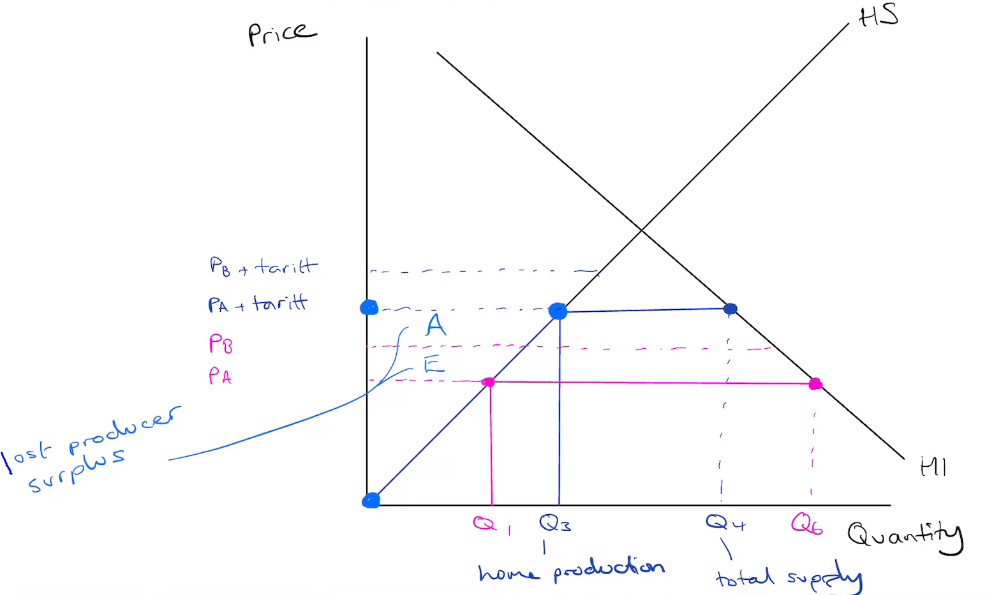 Price
HS
PB + tariff
PA + tariff
A
PB
E
PA
lost producer
surplus
HI
Q1
Q3
Q4
Q6
Quantity
home production
total supply